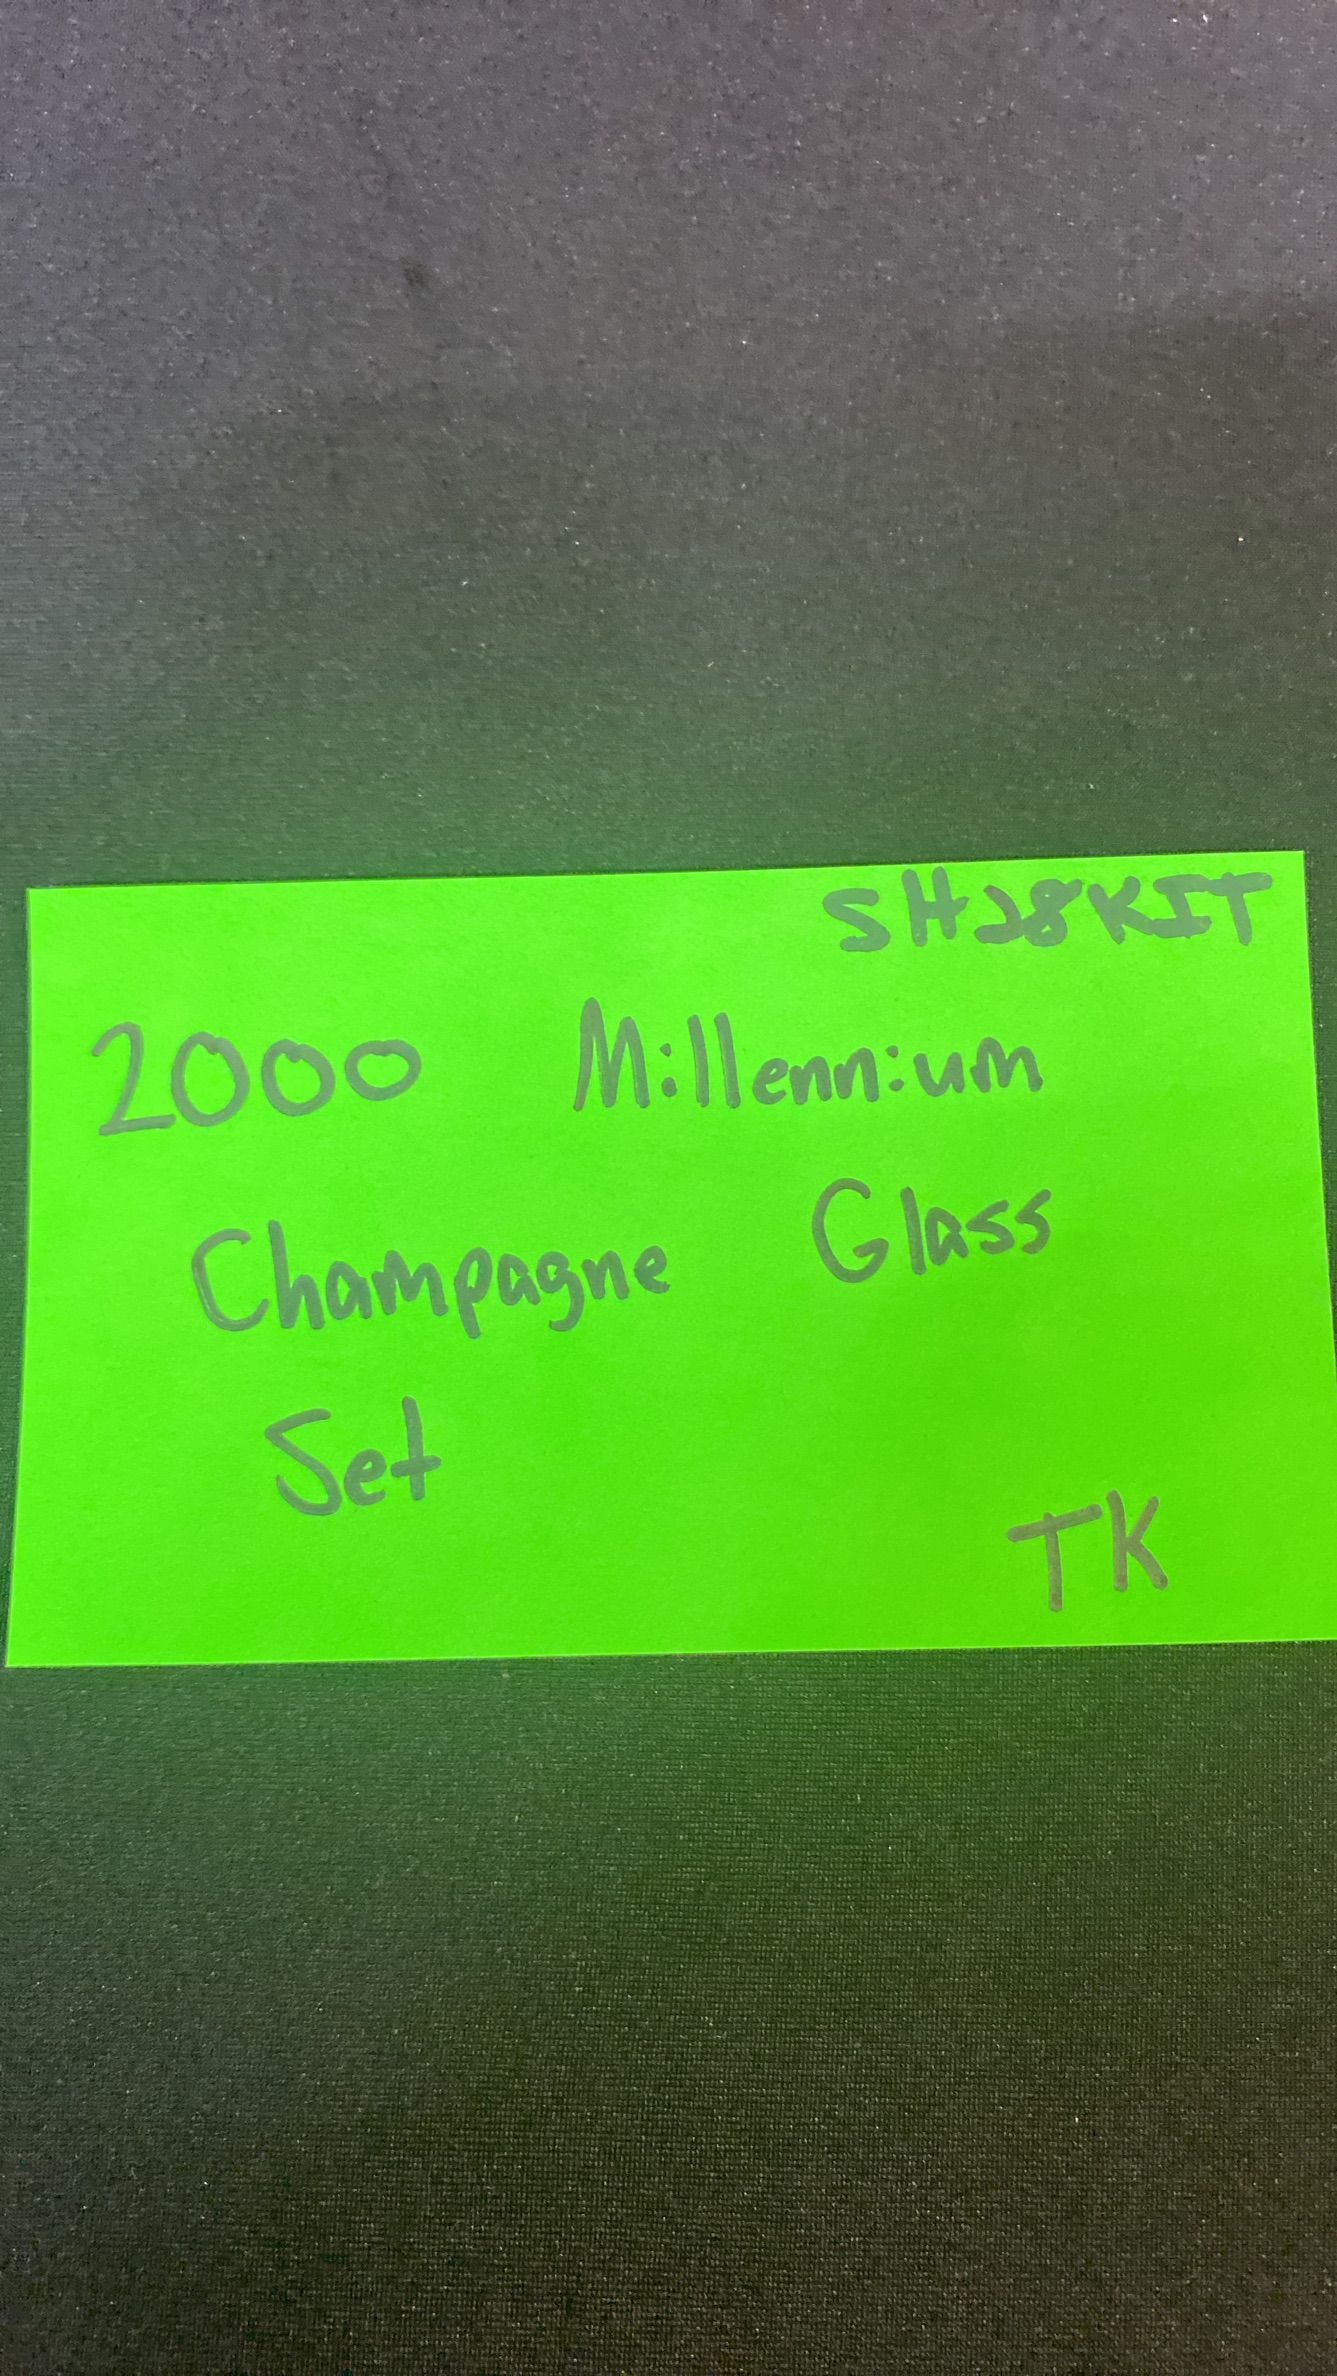 SH28KIT
2000 Millennium
Champagne Glass
Set
TK